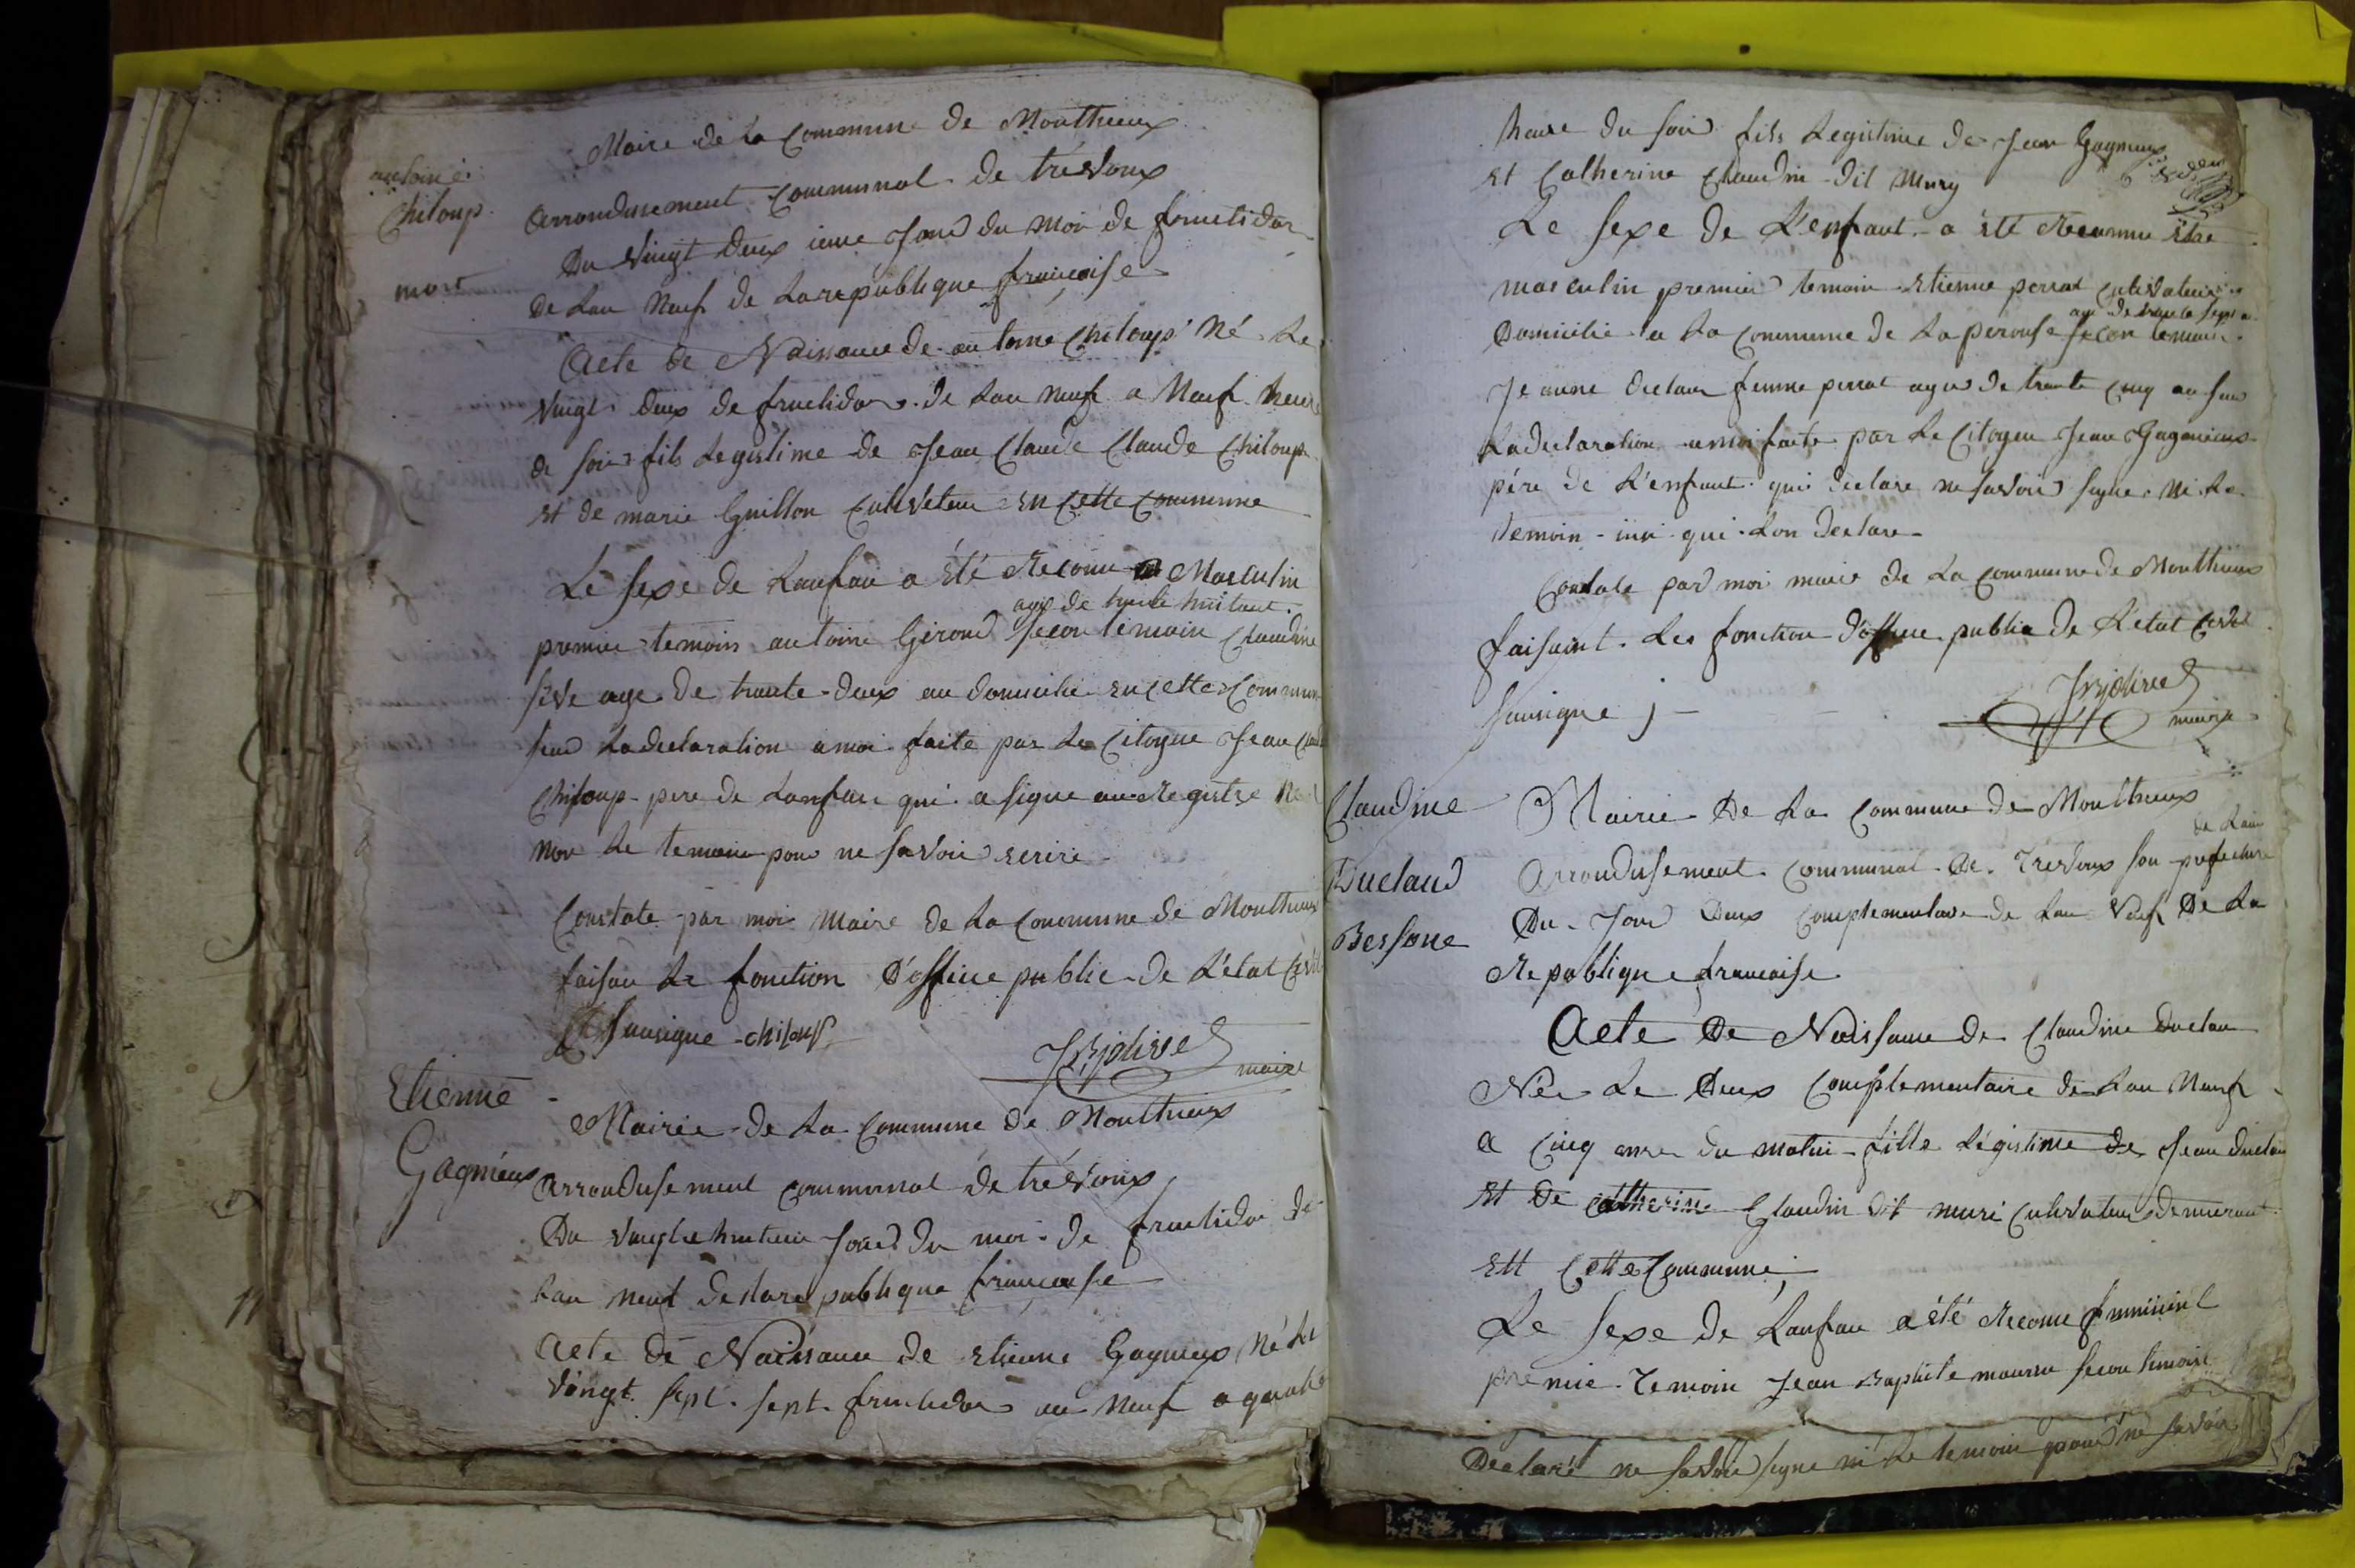 Maire de la Commune de Monthieux
antoine
Chiloup
mort
arrondissement Communal de trésvoux
Du vingt deux ieme Jour du moi de fructidor
de Lan Neuf de La republique francoise
Acte de Naissance de antoine Chiloup Né Le
vingt deux de fructidor de Lan neuf a Neuf heure
de soir fils Legistime de Jean Claude Claude Chiloup
et de marie Guillon Cultiveteur en Cette Commune
Le sexe de Lanfan a été Reconu Masculin
age de trente huit ant
premier temoin antoine Girond secon temoin Claudine
sive age de trante deux an domicilié en Cette Commun
sur La declaration a moi faite par Le Citogne Jean Claude
Chiloup pere de Lanfan qui a signe au Registre
non Le temoin pour ne savoir ecrire
Constate par moi Maire de La Commune de Monthieux
faisan Le fonction D'office public de L'état Civil
sousigne chiloup
JBjolivet maire
Etienne
Gagnieux
Mairie de La Commune de Monthieux
arrondissement Communal de trévoux
Du vingt huitieme Jour du moi de fructidor de
Lan neuf de La republique francoise
Acte de Naissance de etienne Gagnieux Né Le
vingt sept sept fructidor an neuf a quatre
heure du soir fils Legistime de Jean Gagnieux
et Catherine Claudin dit Mury
Le sexe de L'enfant a été Reconnu être
masculin premier temoin etienne perrat Cultivateur
age de trante sept a
Domicilié a La Commune de La perouse secon temoin
Jeanne duclaux femme perrat agee de trante Cinq an sur
La declaration a moi faite par Le Citoyen Jean Gagnieux
pére de L'enfant qui declare ne savoir signer ni Le
temoin insi qui Lon declare
Constate par moi maire de La Commune de Monthieux
faisant Les fonction d'office public de L'état Civil
sousigne
JBjolivet
maire
Claudine
Duclaud
Bessone
Mairie De La Commune de Monthieux
de Lain
Arrondissement Communal de Trevoux sou prefecture
Du Jour Deux Complementaire de Lan Neuf De La
Republique francaise
Acte De Naissance de Claudine Duclau
Née Le Deux Complementaire de Lan Neuf
a Cinq eure du matin fille Légistime de Jean duclau
et de Catherine Glaudin dit muri Cultivateur demeurant
ett Cette Commune
Le sexe de Lanfan a été Reconu feminine
premie Temoin Jean Baptiste secon temoin
Declaré ne savoir signe ni Le temoin pour ne savoir